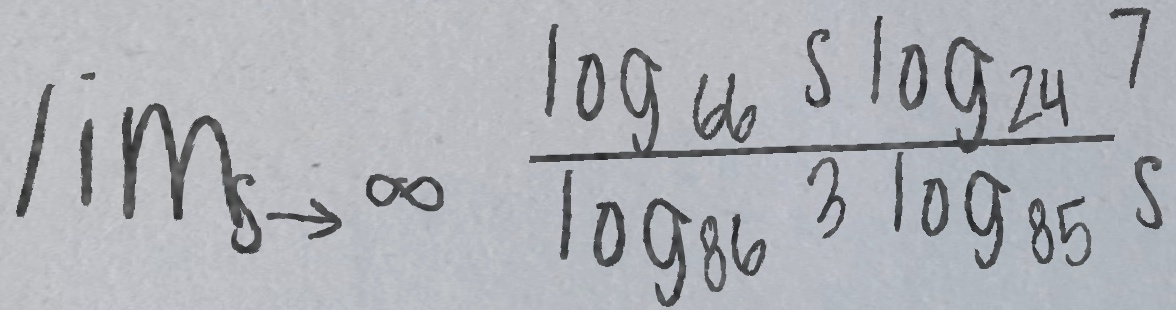 \lim_{s \to \infty} \frac{\log_{66} s \log_{24} 7}{\log_{86} 3 \log_{85} s}